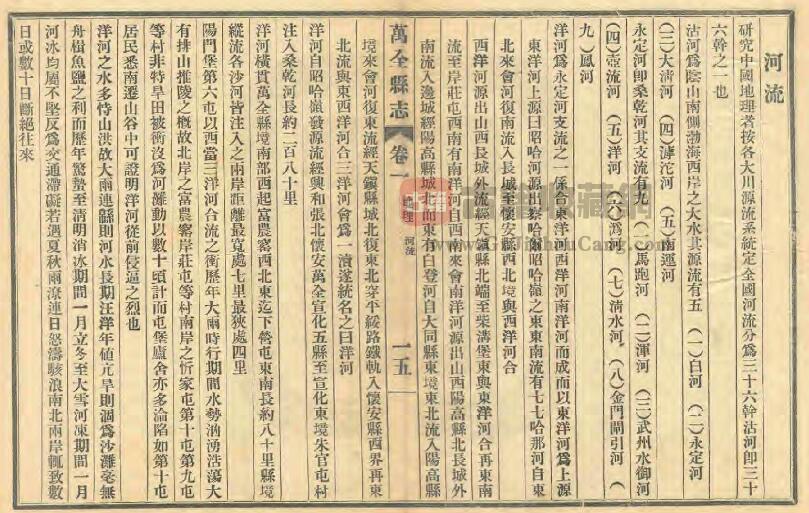 河流
研究中國地理者按各大川源流系統定全國河流分爲三十六幹沽河即三十
六幹之一也
沽河爲陰山南側渤海西岸之大水其源流有五（一）白河（二）永定河
（三）大淸河（四）滹沱河（五）南運河
永定河即桑乾河其支流有九（一）馬跑河（二）渾河（三）武州水御河
（四）壺流河（五）洋河（六）潙河（七）淸水河（八）金門閘引河（
九）鳳河
洋河爲永定河支流之一係合東洋河西洋河南洋河而成而以東洋河爲上源
東洋河上源曰昭哈河源出察哈爾昭哈嶺之東東南流有七七哈那河自東
北來會河復南流入長城至懷安縣西北境與西洋河合
西洋河源出山西長城外流經天鎭縣北端至柴溝堡東與東洋河合再東南
流至岸莊屯西南有南洋河自西南來會南洋河源出山西陽高縣北長城外
南流入邊城經陽高縣城北而東有白登河自大同縣東境東北流入陽高縣
萬全縣志
卷一
地理
河流
一五
境來會河復東流經天鎭縣城北復東北穿平綏路鐵軌入懷安縣西界再東
北流與東西洋河合三洋河會爲一瀆遂統名之曰洋河
洋河自昭哈嶺發源流經興和張北懷安萬全宣化五縣至宣化東境朱官屯村
注入桑乾河長約二百八十里
洋河橫貫萬全縣境南部西起富農窰西北東迄下營屯東南長約八十里縣境
縱流各沙河皆注入之兩岸距離最寬處七里最狹處四里
陽門堡第六屯以西當三洋河合流之衝歷年大雨時行期間水勢洶湧浩蕩大
有排山推陵之概故北岸之富農窰岸莊屯等村南岸之忻家屯第十屯第九屯
等村非特旱田被衝沒爲河灘動以數十頃計而屯堡廬舍亦多淪陷如第十屯
居民悉南遷山谷中可證明洋河從前侵逼之烈也
洋河之水多恃山洪故大雨連緜則河水長期汪洋年値亢旱則涸爲沙灘毫無
舟楫魚鹽之利而歷年驚蟄至清明消冰期間一月立冬至大雪河凍期間一月
河冰均屬不堅反爲交通滯礙若遇夏秋雨潦連日怒濤駭浪南北兩岸輒致數
日或數十日斷絕往來